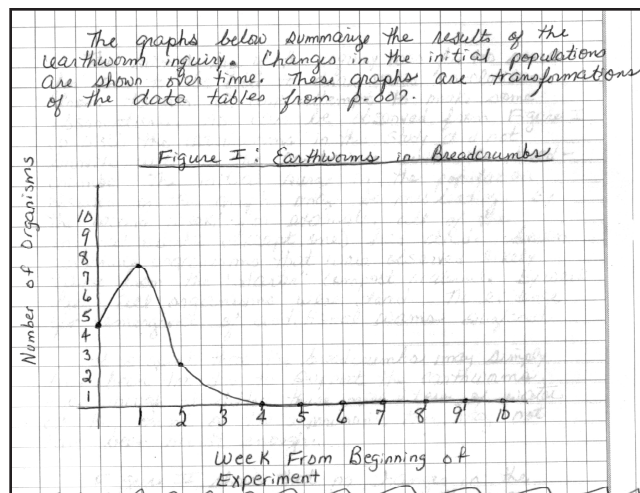 The graphs below summarize the results of the
earthworm inquiry. Changes in the initial populations
are shown over time. These graphs are transformations
of the data tables from p. 007.
Figure I: Earthworms in Breadcrumbs
Number of Organisms
10
9
8
7
6
5
4
3
2
1
1 2 3 4 5 6 7 8 9 10
Week From Beginning of
Experiment